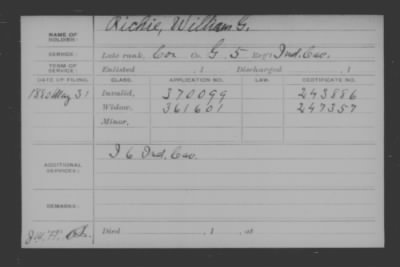 NAME OF SOLDIER: Richie, William G.
SERVICE: Late rank, Cor Co. G. 5 Reg't Ind. Cav.
TERM OF SERVICE: Enlisted , 1 Discharged , 1
DATE OF FILING. CLASS. APPLICATION NO. LAW. CERTIFICATE NO.
1880 May 31 Invalid, 370099 243886
Widow, 361601 247357
Minor,
ADDITIONAL SERVICES: I 6 Ind. Cav.
REMARKS:
Died , 1 , at